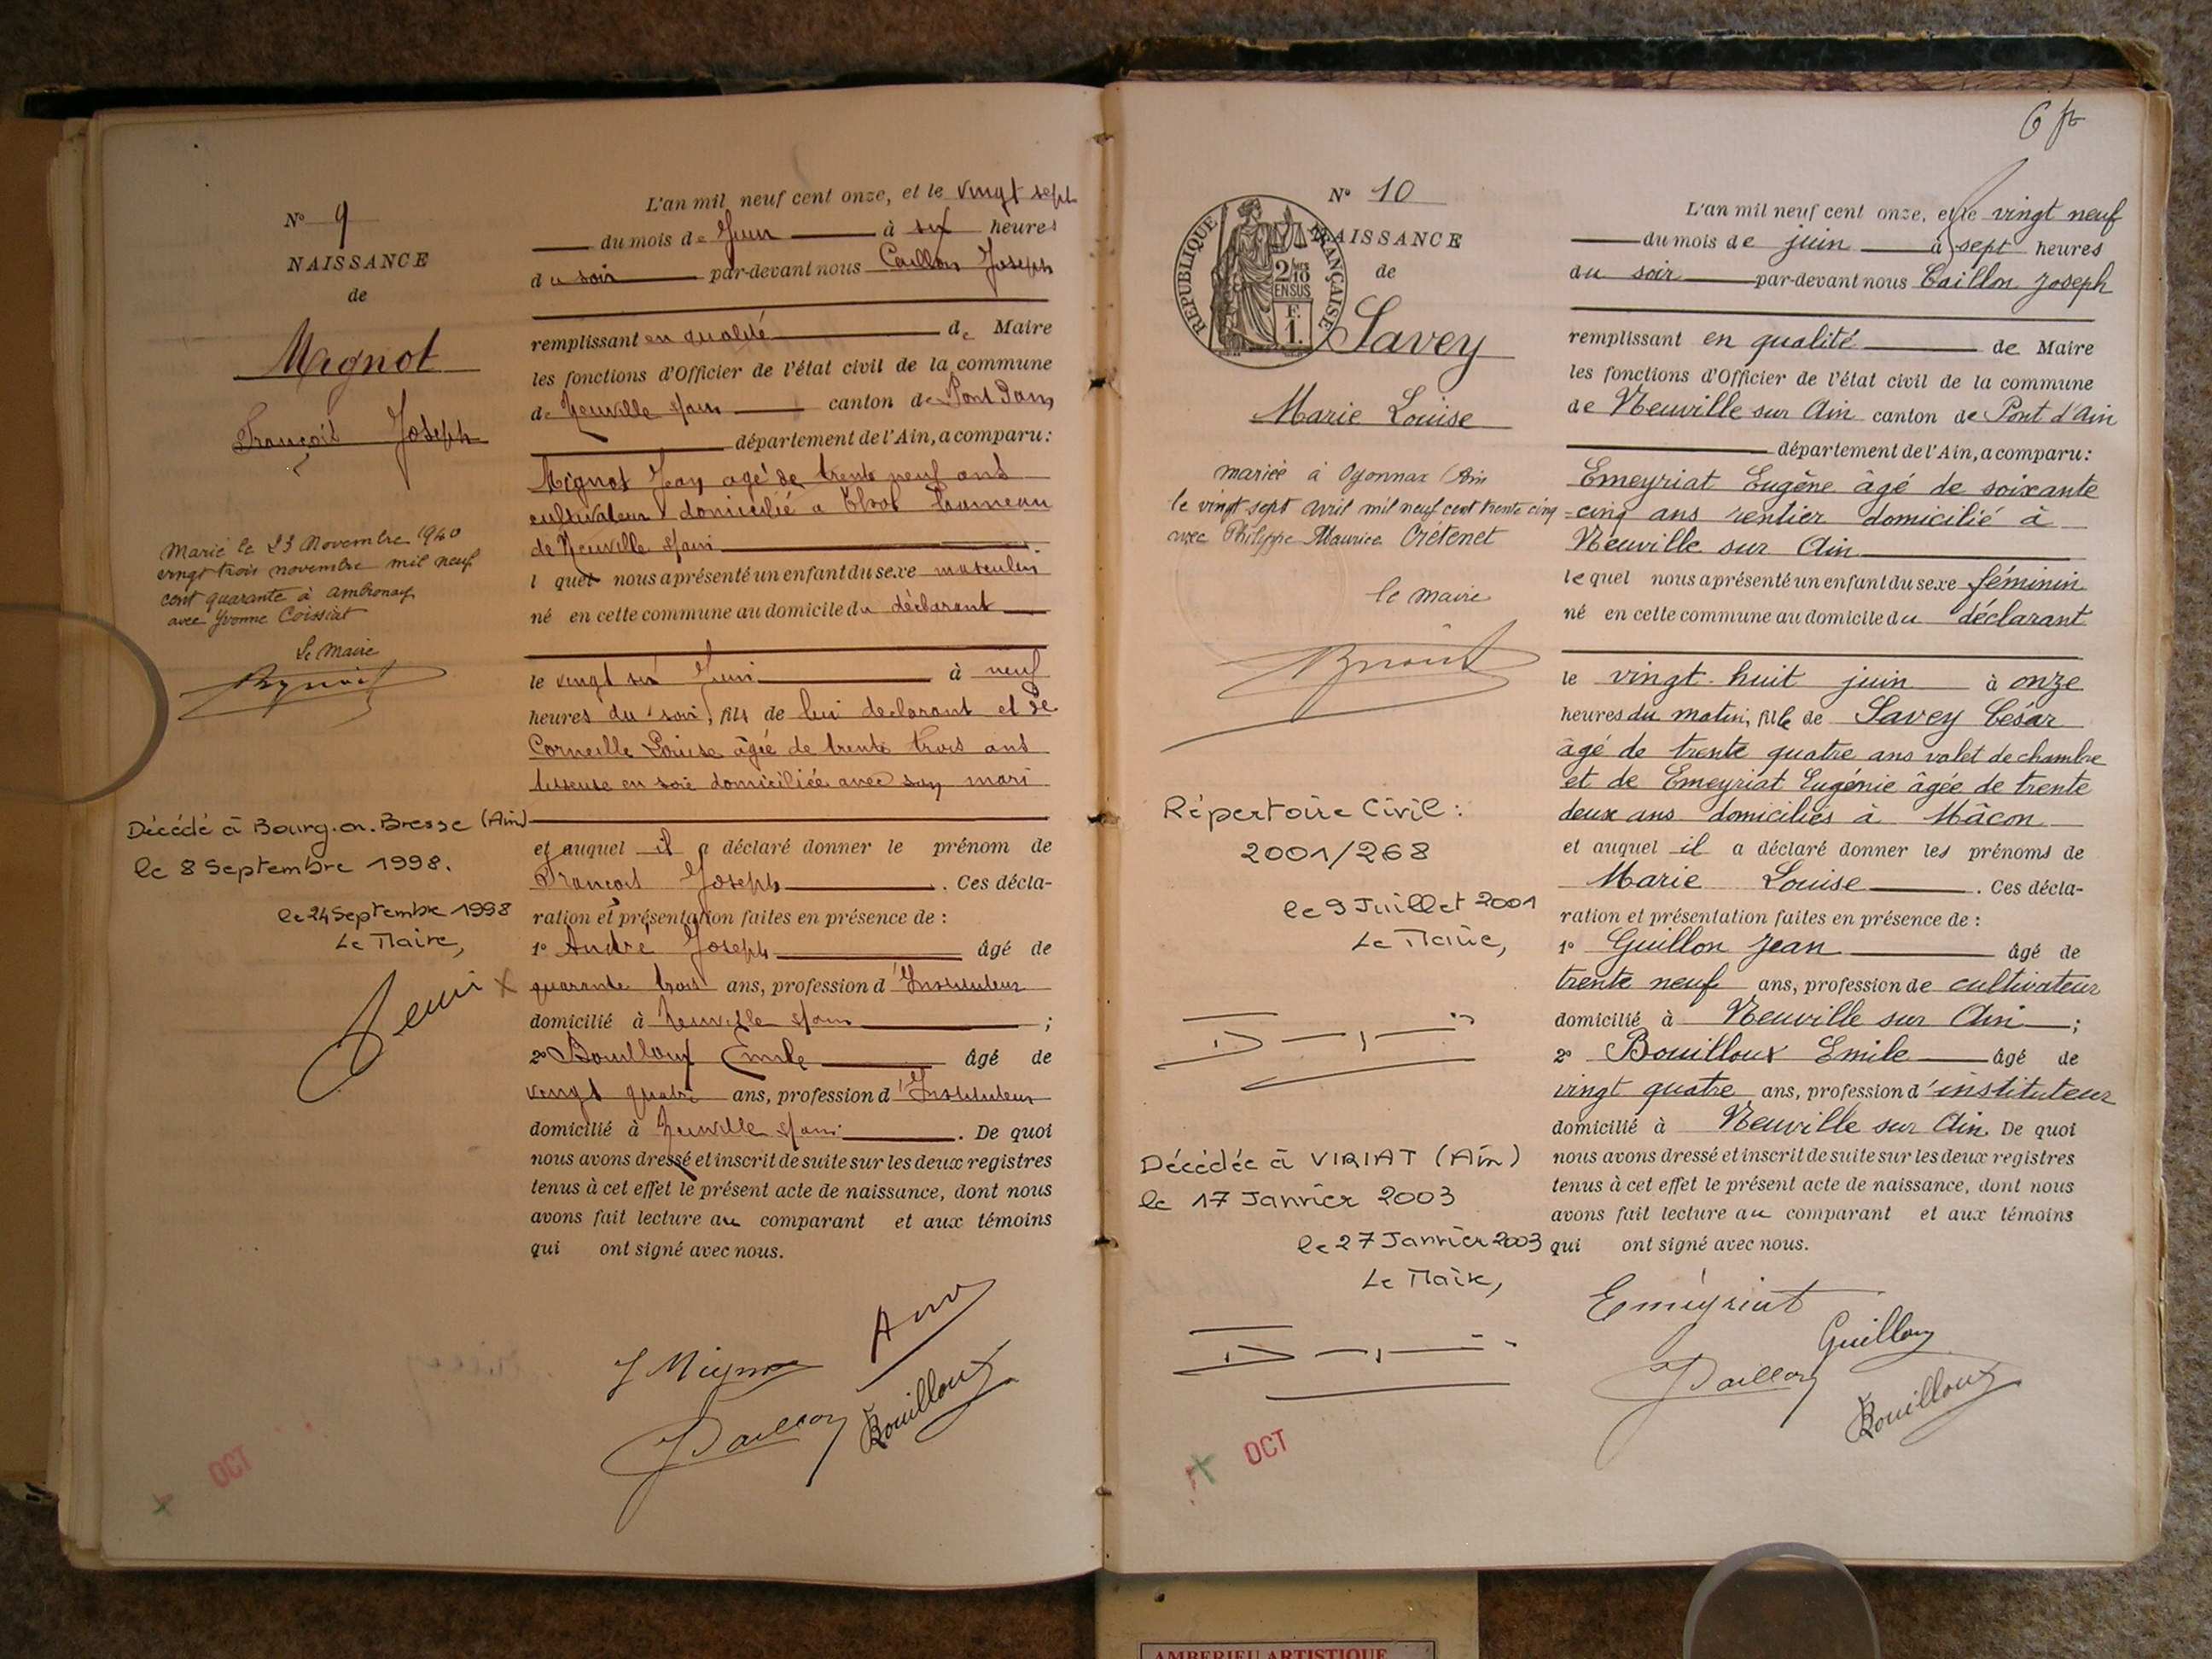 N° 9
NAISSANCE
de
Mignot
François Joseph
Marié le 23 Novembre 1940
vingt trois novembre mil neuf
cent quarante à Ambronay
avec Yvonne Coissiat
Le Maire
Décédé à Bourg.en.Bresse (Ain)
le 8 Septembre 1998.
le 24 Septembre 1998
Le Maire,
L'an mil neuf cent onze, et le vingt sept
du mois de Juin à six heures
du soir par-devant nous Caillon Joseph
remplissant en qualité de Maire
les fonctions d'Officier de l'état civil de la commune
de Neuville s/ain canton de Pont Dain
département de l'Ain, a comparu:
Mignot Jean agé de trente neuf ans
cultivateur domicilié a Thol hameau
de Neuville s/ain
l quel nous a présenté un enfant du sexe masculin
né en cette commune au domicile du déclarant
le vingt six Juin à neuf
heures du soir, fils de lui declarant et de
Corneille Louise âgée de trente trois ans
tisseuse en soie domiciliée avec son mari
et auquel il a déclaré donner le prénom de
François Joseph. Ces décla-
ration et présentation faites en présence de :
1° André Joseph âgé de
quarante trois ans, profession d'Instituteur
domicilié à Neuville s/ain ;
2° Bouilloux Emile âgé de
vingt quatre ans, profession d'Instituteur
domicilié à Neuville s/ain. De quoi
nous avons dressé et inscrit de suite sur les deux registres
tenus à cet effet le présent acte de naissance, dont nous
avons fait lecture au comparant et aux témoins
qui ont signé avec nous.
J Mignot
JCaillon
Bouilloux
OCT
N° 10
NAISSANCE
de
REPUBLIQUE FRANÇAISE
2/10
EN SUS
F.
1.
Savey
Marie Louise
mariée à Oyonnax (Ain
le vingt sept avril mil neuf cent trente cinq
avec Philippe Maurice Crétenet
le maire
Répertoire Civil :
2001/268
le 9 Juillet 2001
Le Maire,
Décédée à VIRIAT (Ain)
le 17 Janvier 2003
le 27 Janvier 2003
Le Maire,
OCT
L'an mil neuf cent onze, et le vingt neuf
du mois de juin à sept heures
du soir par-devant nous Caillon Joseph
remplissant en qualité de Maire
les fonctions d'Officier de l'état civil de la commune
de Neuville sur Ain canton de Pont d'Ain
département de l'Ain, a comparu:
Emeyriat Eugène âgé de soixante
-cinq ans rentier domicilié à
Neuville sur Ain
lequel nous a présenté un enfant du sexe féminin
né en cette commune au domicile du déclarant
le vingt-huit juin à onze
heures du matin, fille de Savey César
âgé de trente quatre ans valet de chambre
et de Emeyriat Eugénie âgée de trente
deux ans domiciliés à Mâcon
et auquel il a déclaré donner les prénoms de
Marie Louise. Ces décla-
ration et présentation faites en présence de :
1° Guillon Jean âgé de
trente neuf ans, profession de cultivateur
domicilié à Neuville sur Ain ;
2° Bouilloux Emile âgé de
vingt quatre ans, profession d'instituteur
domicilié à Neuville sur Ain. De quoi
nous avons dressé et inscrit de suite sur les deux registres
tenus à cet effet le présent acte de naissance, dont nous
avons fait lecture au comparant et aux témoins
qui ont signé avec nous.
Emeyriat
Guillon
JCaillon
Bouilloux
AMBERIEU ARTISTIQUE